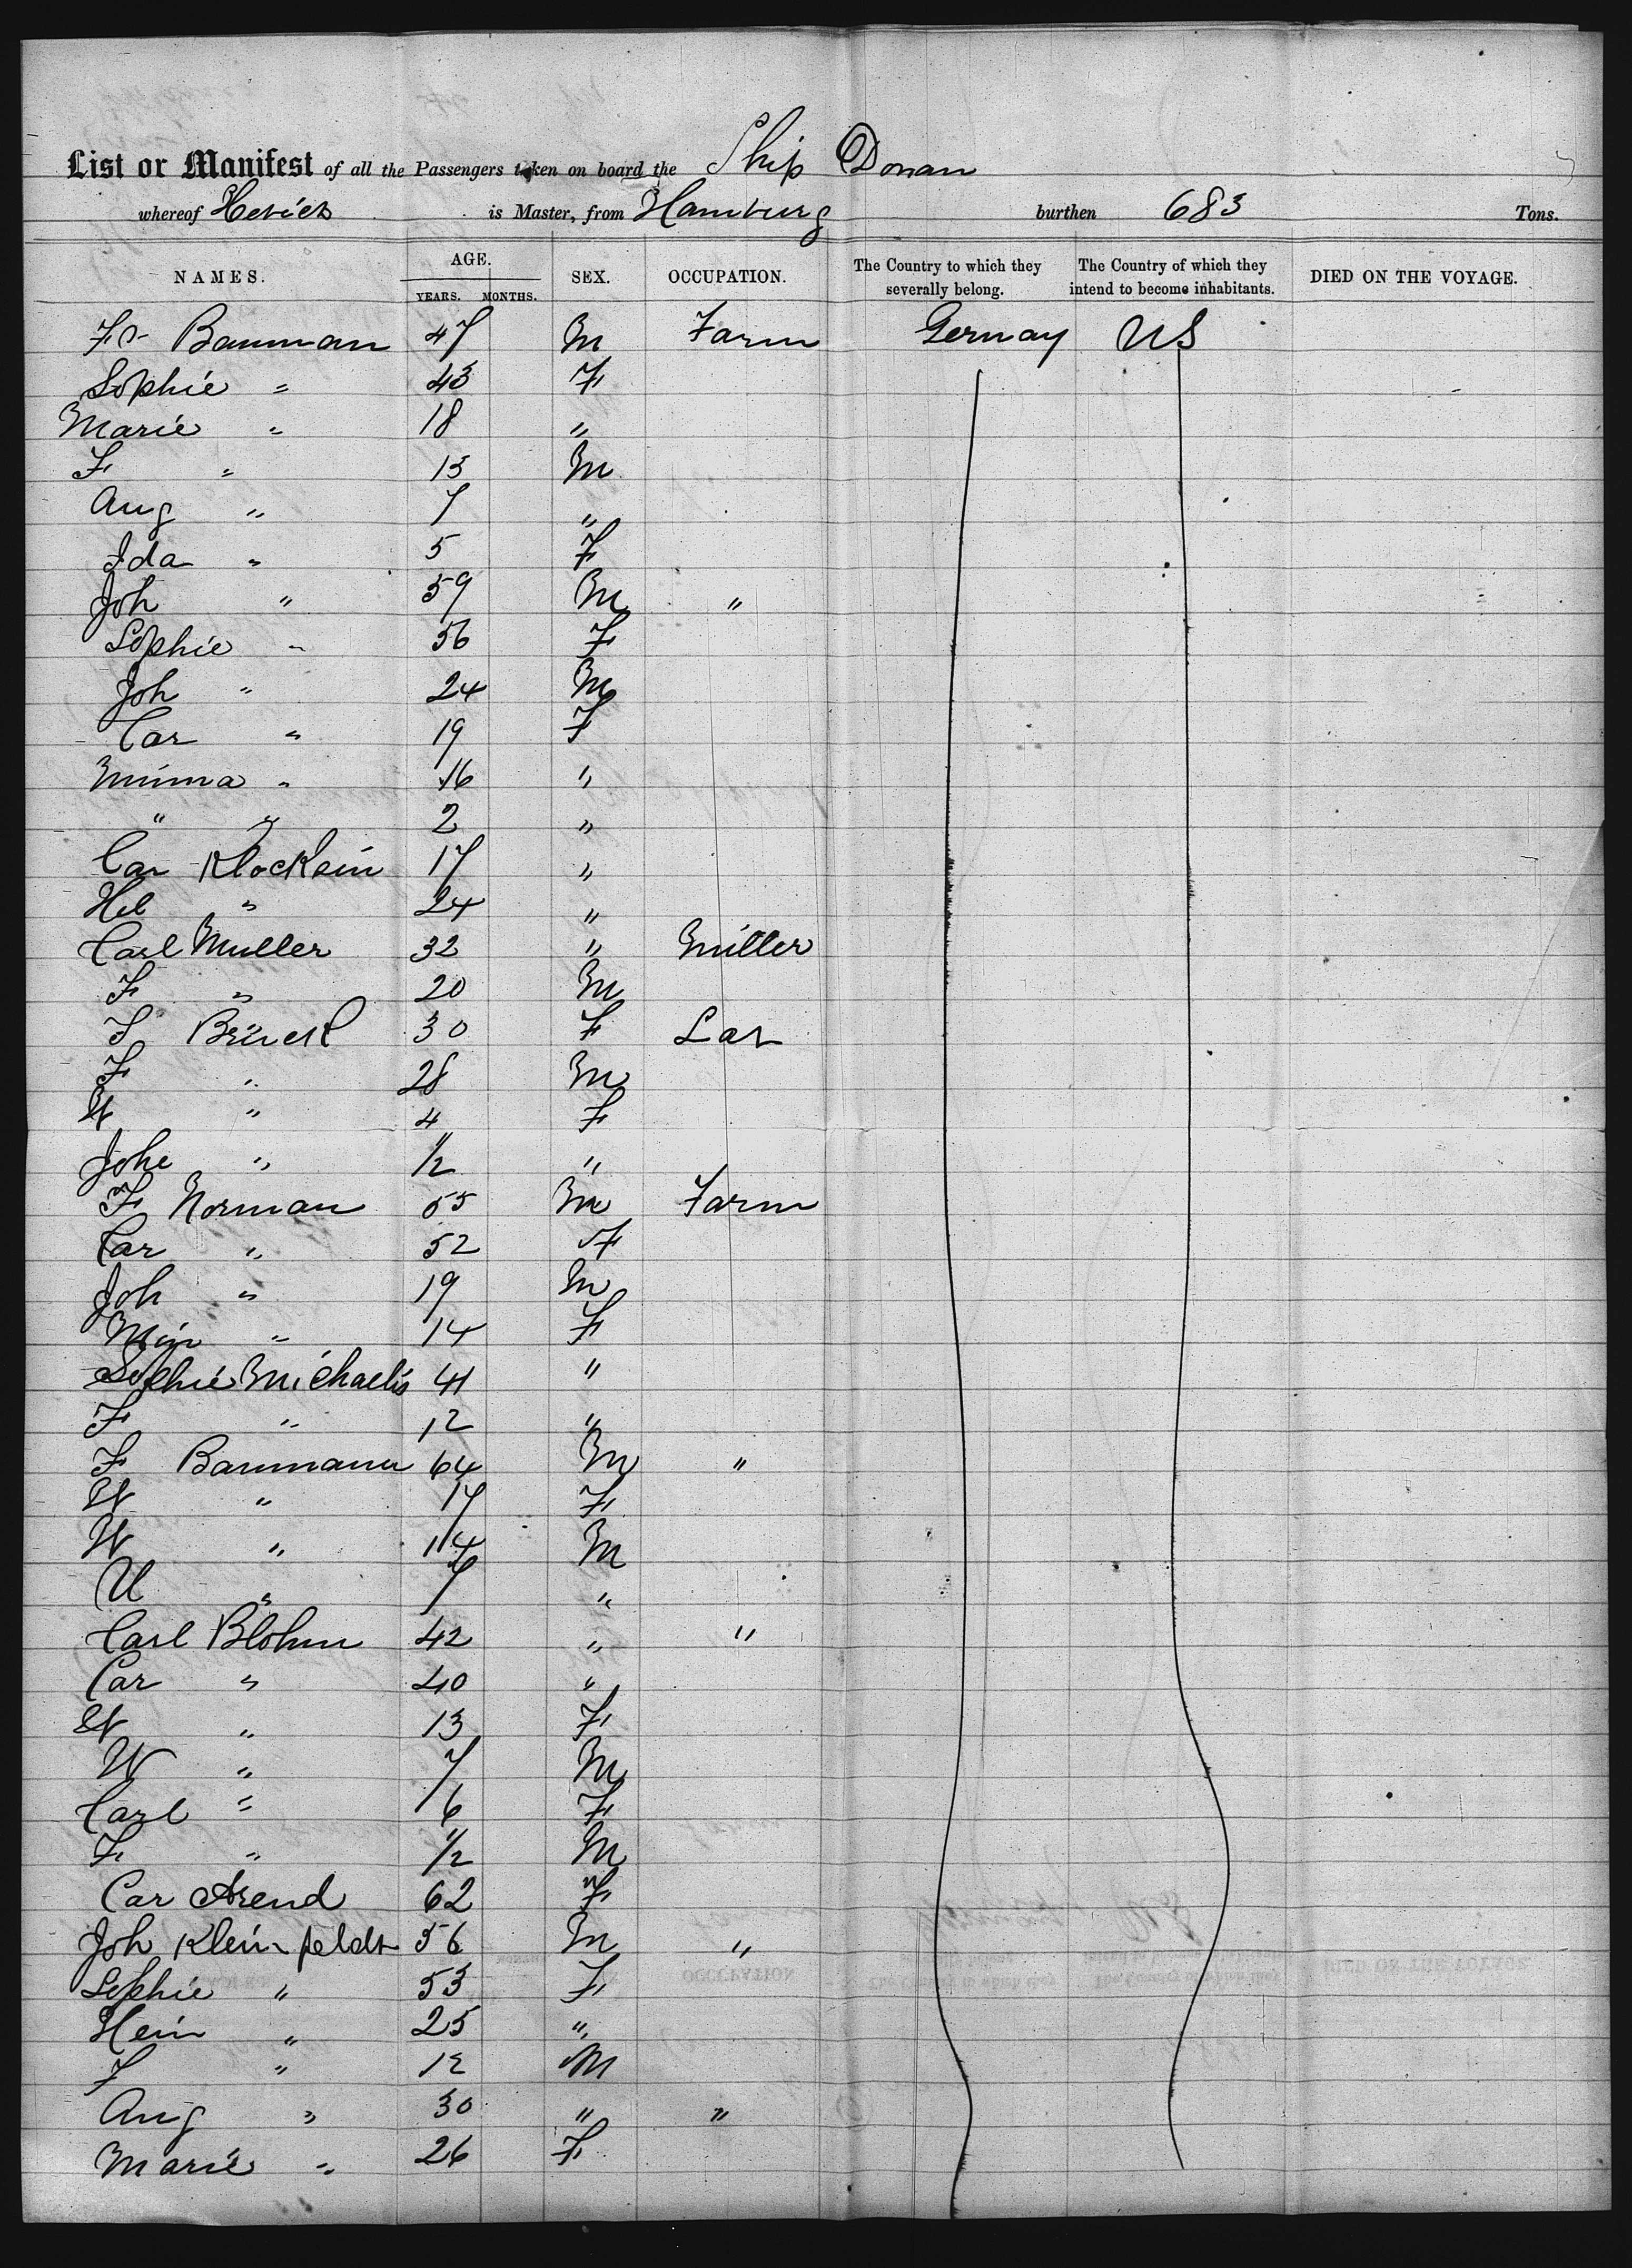 List or Manifest of all the Passengers taken on board the Ship Donan
whereof is Master, from Hamburg burthen 683 Tons.
NAMES. AGE. YEARS. MONTHS. SEX. OCCUPATION. The Country to which they severally belong. The Country of which they intend to become inhabitants. DIED ON THE VOYAGE.
Fr Bauman 47 M Farm Gernay US
Sophie " 43 F
Marie " 18 "
F " 13 M
Aug " 7 "
Ida " 5 F
Joh " 59 M "
Sophie " 56 F
Joh " 24 M
Car " 19 F
Minna " 16 "
" " 2 "
Car Klocksin 17 "
Hel " 24 "
Carl Muller 32 " Miller
F " 20 M
F 30 F
F " 28 M
W " 4 F
Johe " 1/2 "
F Norman 55 M Farm
Car " 52 F
Joh " 19 M
Min " 14 F
Sophie Michaelis 41 "
F " 12 "
F Baumann 64 M "
W " 17 F
W " 14 M
U " 7 "
Carl Blohm 42 " "
Car " 40 "
W " 13 F
W " 7 M
Carl " 6 F
F " 1/2 M
Car Arend 62 F
Joh Kleinfeldt 56 M "
Sophie " 53 F
Hein " 25 "
F " 12 M
Aug " 30 " "
Marie " 26 F